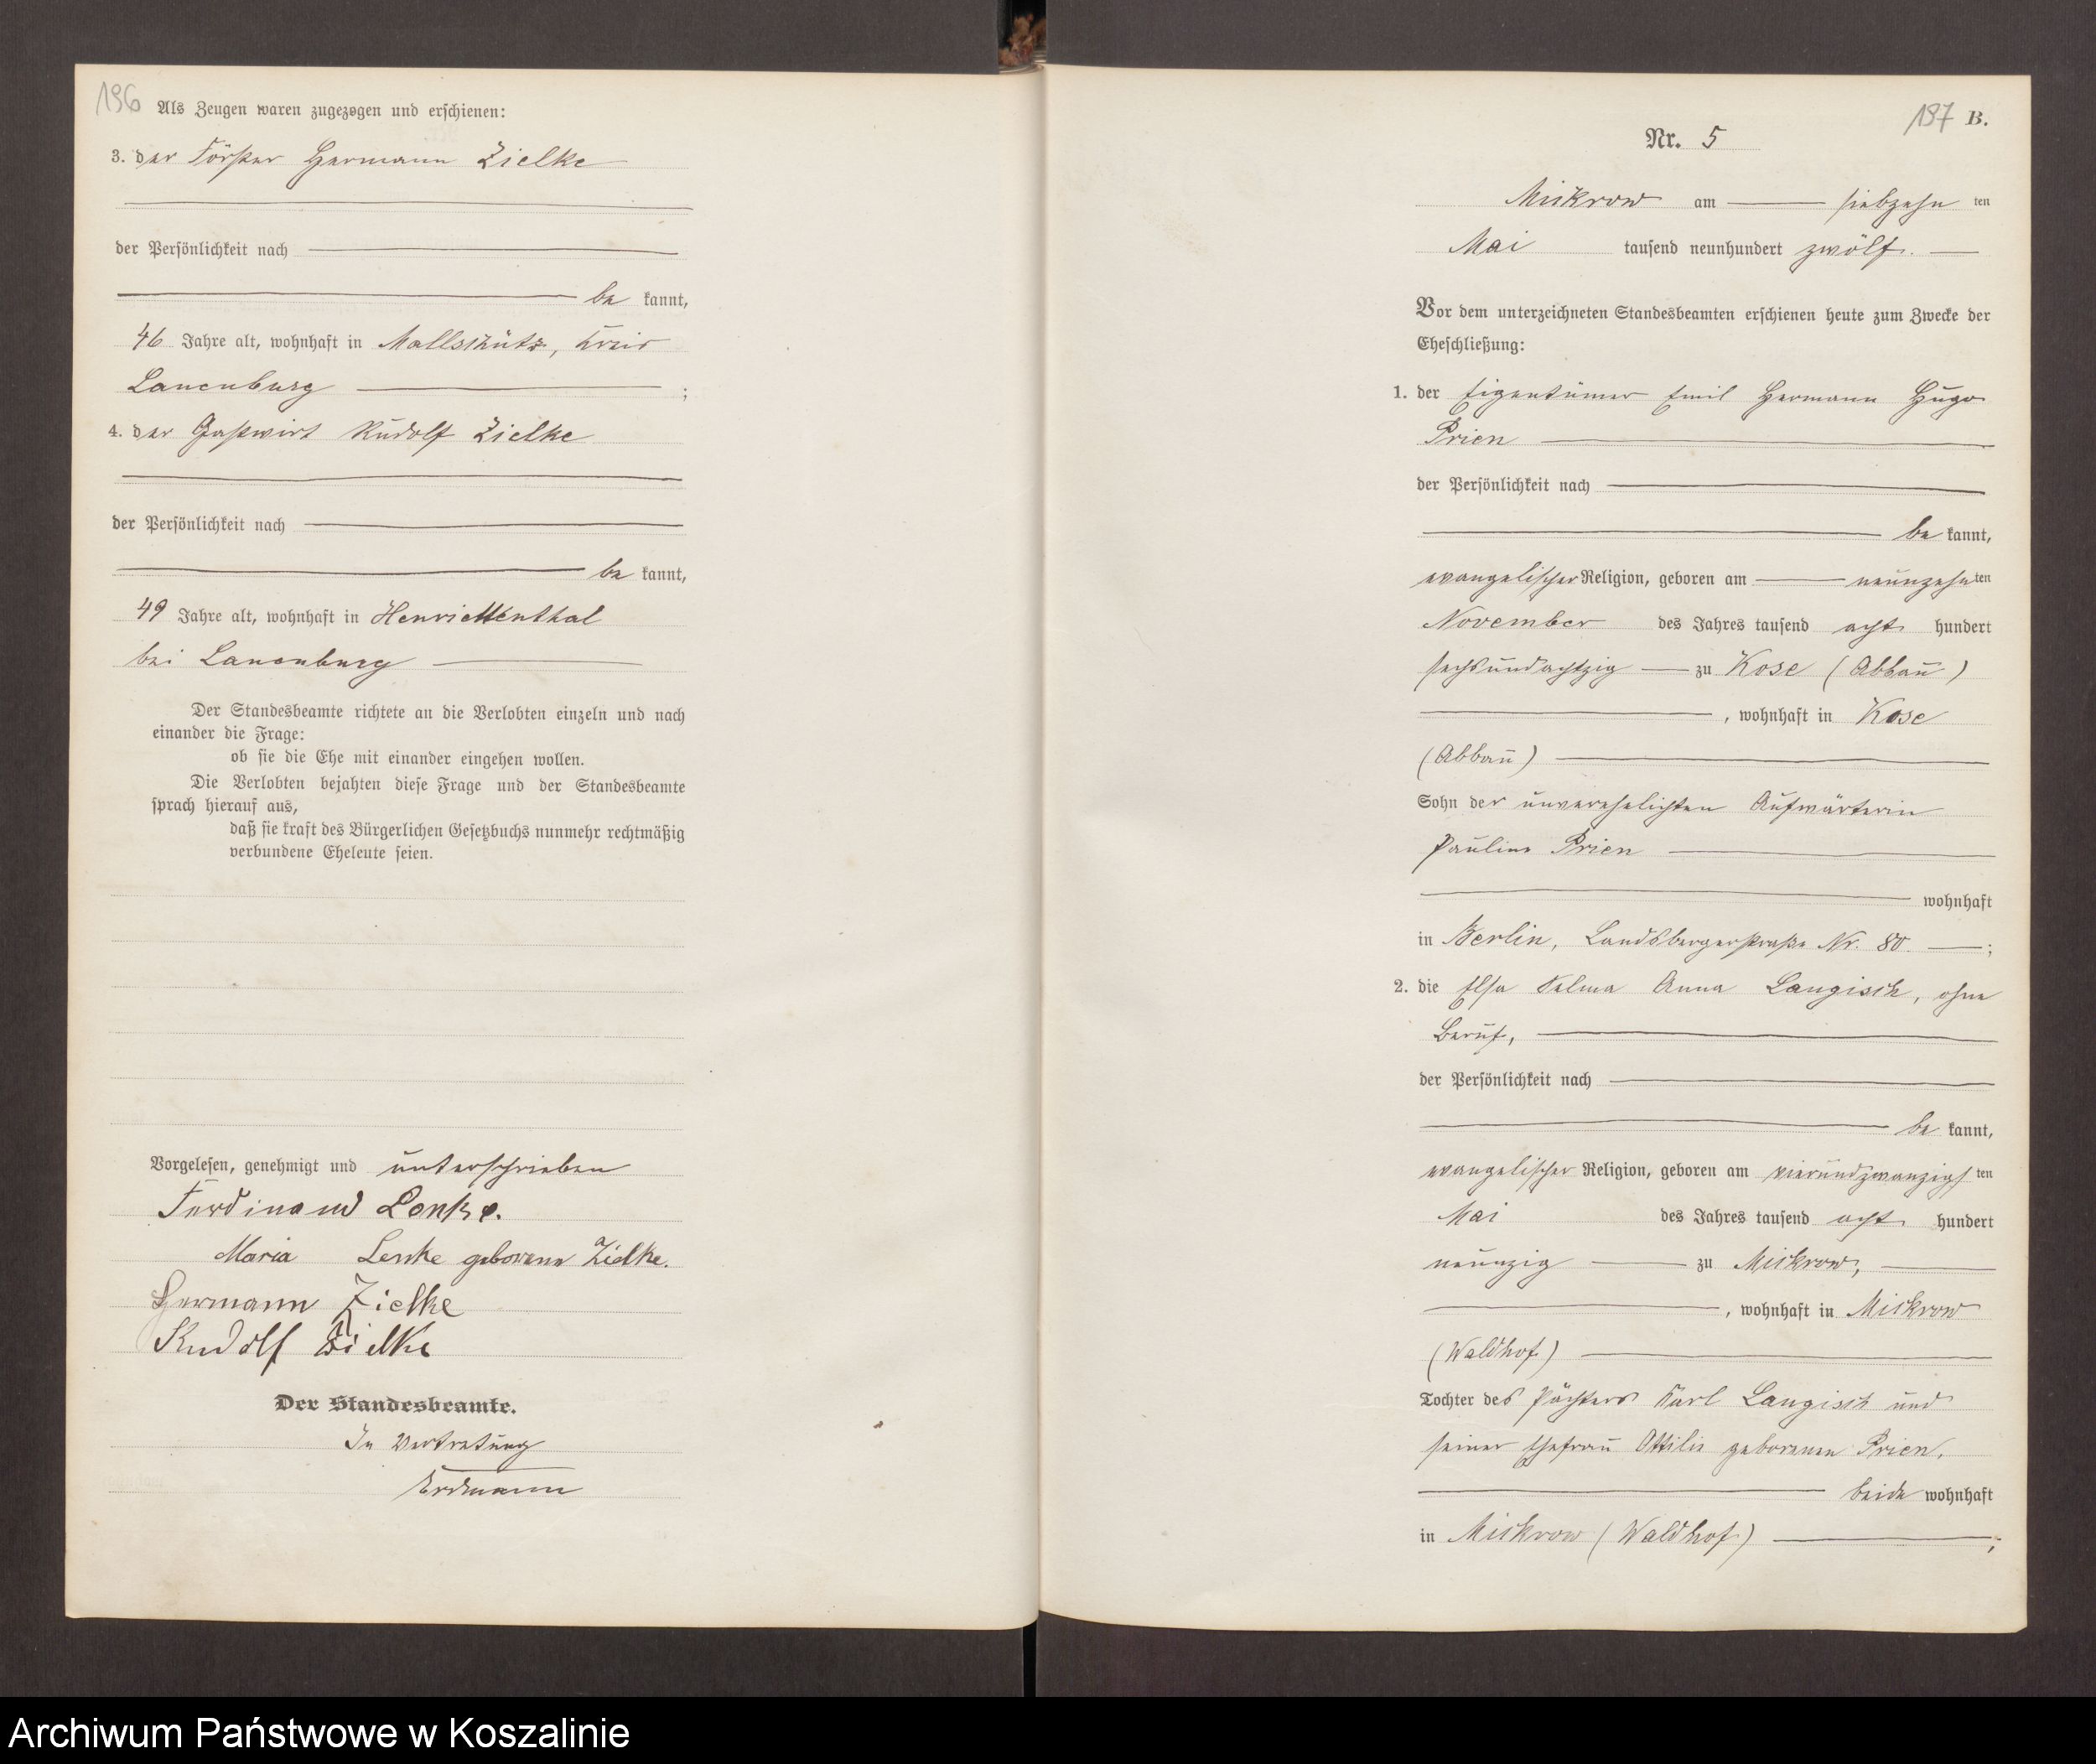 196
Als Zeugen waren zugezogen und erschienen:
3. der Förster Hermann Zielke
der Persönlichkeit nach
be kannt,
46 Jahre alt, wohnhaft in Mallschütz, Kreis
Lauenburg ;
4. der Gastwirt Rudolf Zielke
der Persönlichkeit nach
be kannt,
49 Jahre alt, wohnhaft in Henriettenthal
bei Lauenburg
Der Standesbeamte richtete an die Verlobten einzeln und nach
einander die Frage:
ob sie die Ehe mit einander eingehen wollen.
Die Verlobten bejahten diese Frage und der Standesbeamte
sprach hierauf aus,
daß sie kraft des Bürgerlichen Gesetzbuchs nunmehr rechtmäßig
verbundene Eheleute seien.
Vorgelesen, genehmigt und unterschrieben
Ferdinand Lenke.
Maria Lenke geborene Zielke.
Hermann Zielke
Rudolf Zielke
Der Standesbeamte.
In Vertretung
Erdmann
187 B.
Nr. 5
Mickrow am siebzehn ten
Mai tausend neunhundert zwölf.
Vor dem unterzeichneten Standesbeamten erschienen heute zum Zwecke der
Eheschließung:
1. der Eigentümer Emil Hermann Hugo
Prien
der Persönlichkeit nach
be kannt,
evangelischer Religion, geboren am neunzehn ten
November des Jahres tausend acht hundert
sechsundachtzig zu Kose (Abbau)
, wohnhaft in Kose
(Abbau)
Sohn der unverehelichten Aufwärterin
Pauline Prien
wohnhaft
in Berlin, Landsbergerstraße Nr. 80. ;
2. die Elsa Selma Anna Langisch, ohne
Beruf,
der Persönlichkeit nach
be kannt,
evangelischer Religion, geboren am vierundzwanzigs ten
Mai des Jahres tausend acht hundert
neunzig zu Mickrow,
, wohnhaft in Mickrow
(Waldhof)
Tochter des Pächters Karl Langisch und
seiner Ehefrau Ottilie geborenen Prien,
beide wohnhaft
in Mickrow (Waldhof) ;
Archiwum Państwowe w Koszalinie